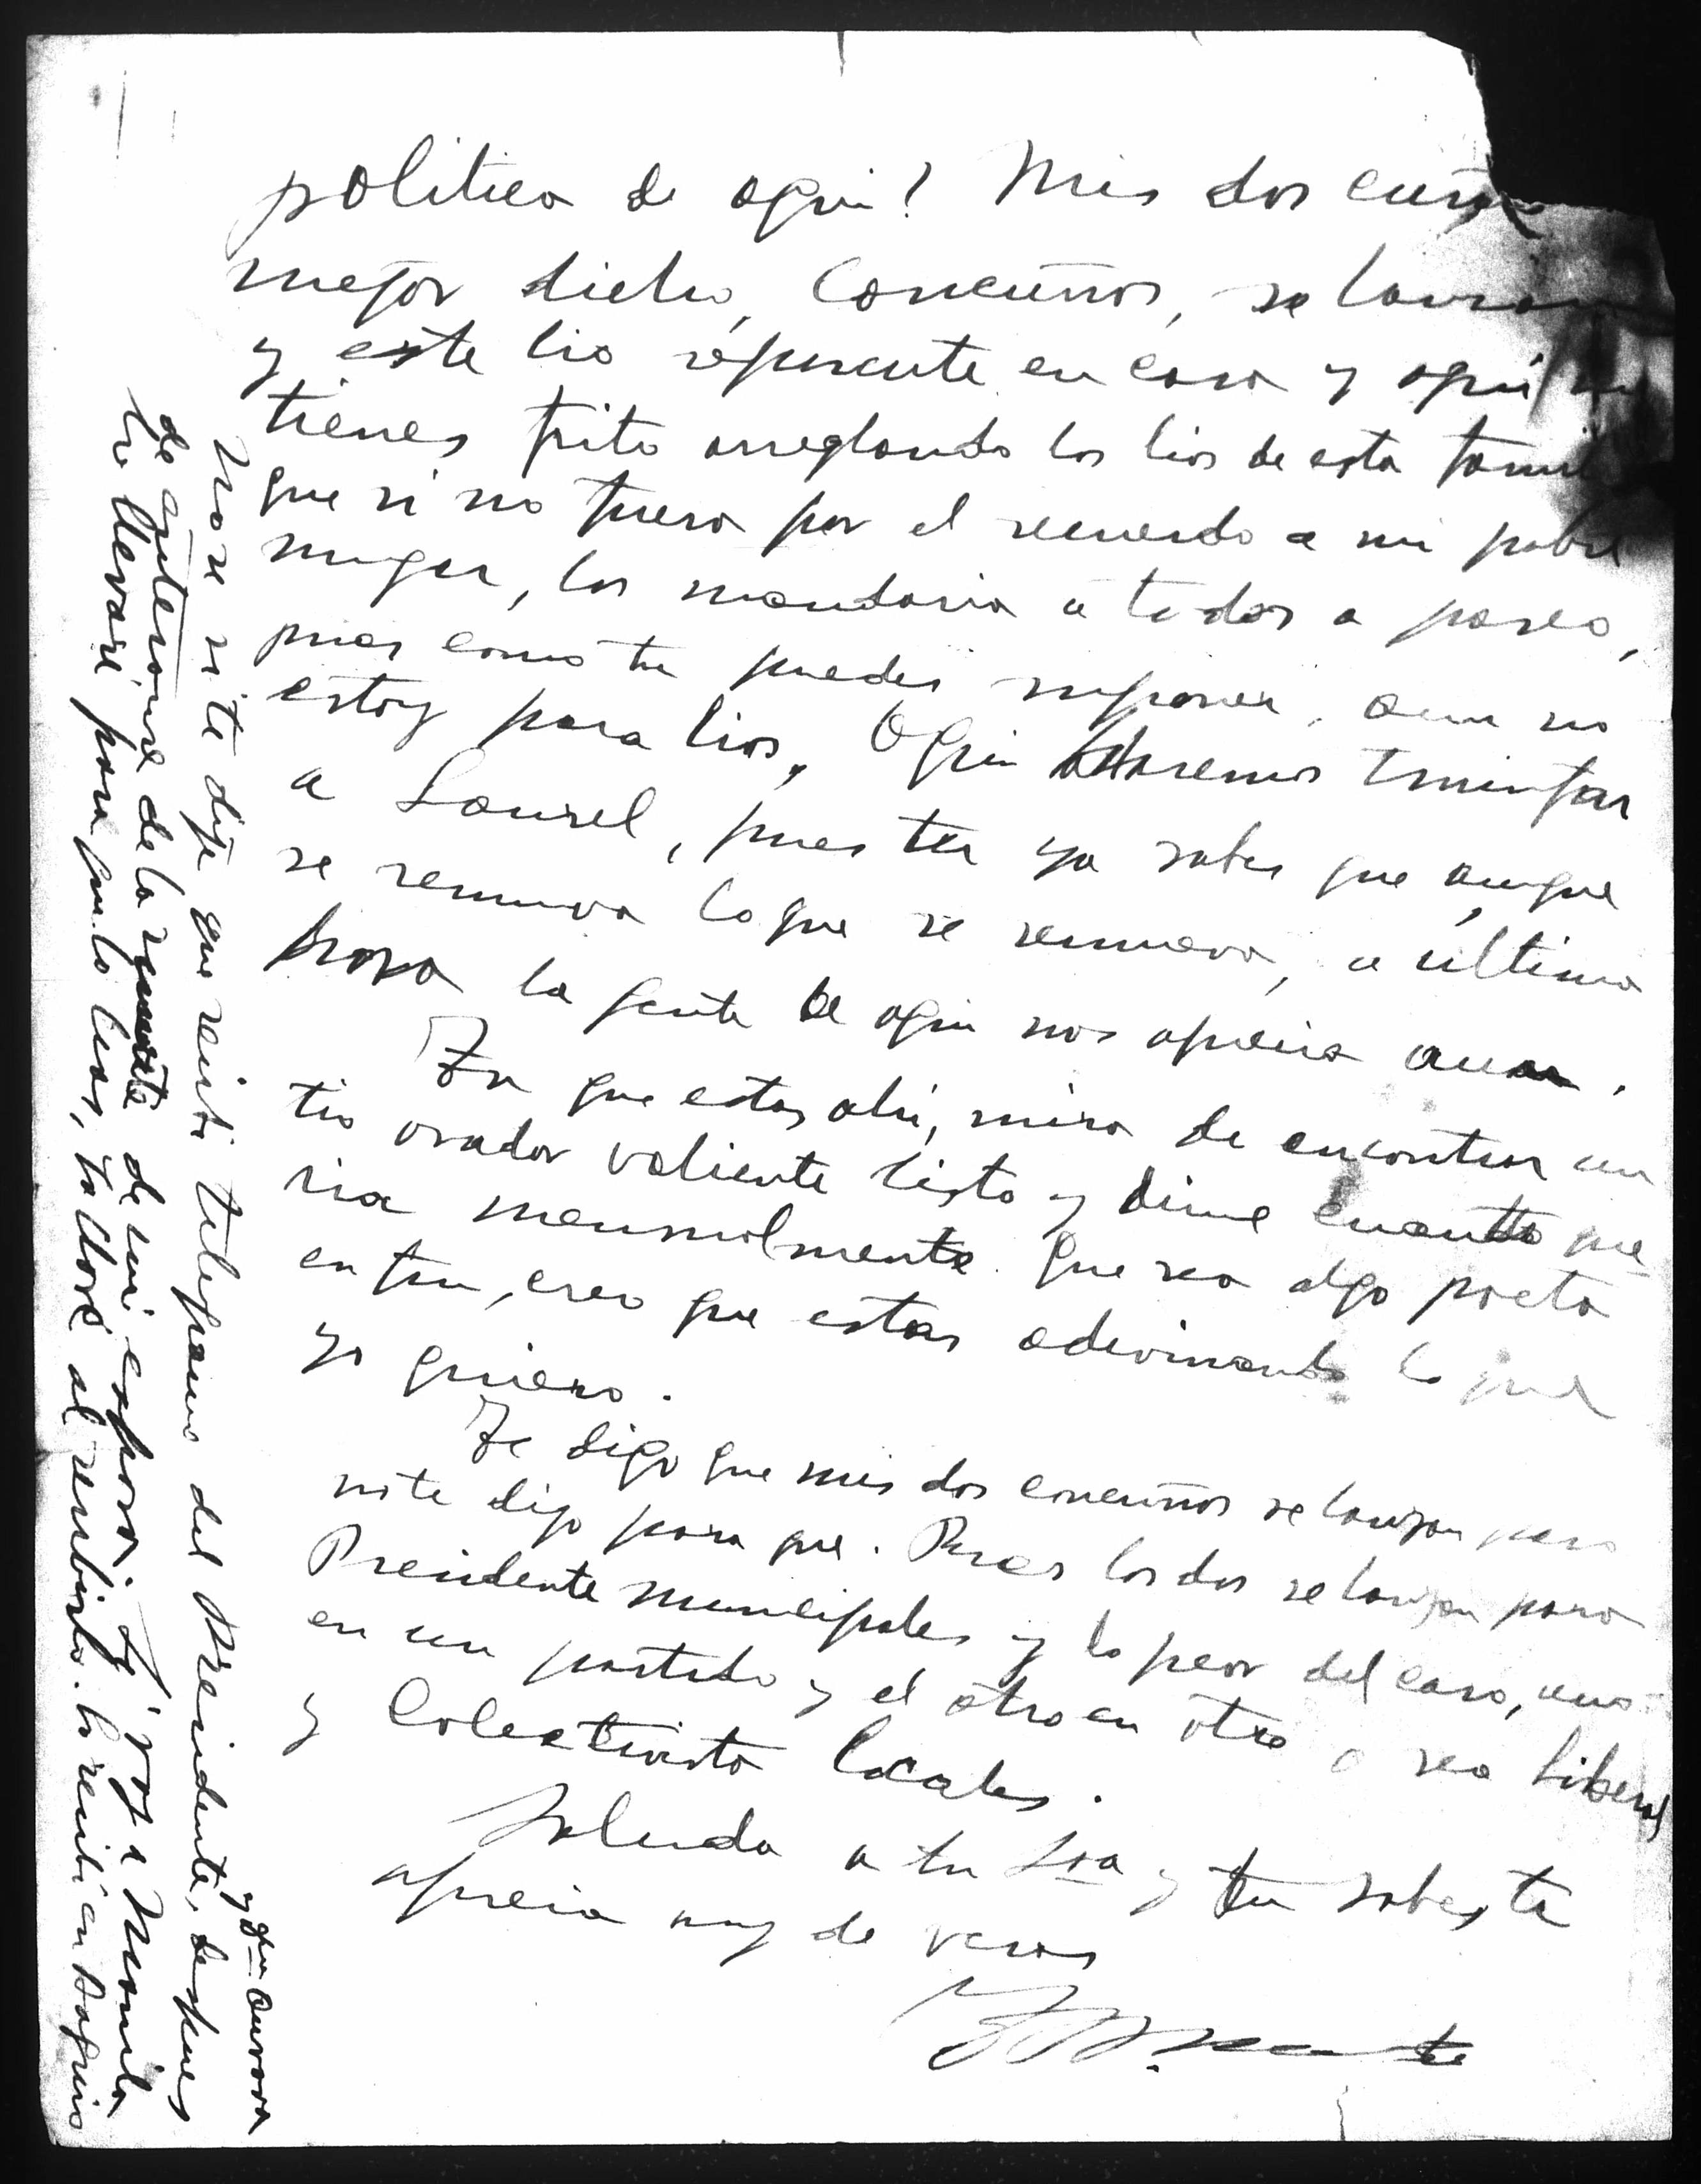 politica de aqui? Mis dos cuña
mejor dicho, concuños, se lanzan
y este lio repercute en casa y aqui me
tienes frito arreglando los lios de esta famili
que si no fuera por el recuerdo a mi pobre
muger, los mandaria a todos a paseo,
pues como tu puedes suponer, aun no
estoy para lios. Aqui haremos triunfar
a Laurel, pues tu ya sabes que aunque
se remueva lo que se remueva, a ultima
hora la gente de aqui nos aprecia aun.
Tu que estas ahi, mira de encontrar un
tio orador valiente listo y dime cuanto que
ria mensualmente. Que sea algo poeta
en fin, creo que estas adivinando lo que
yo quiero.
Te digo que mis dos concuños se lanzan pero
no te digo para que. Pues los dos se lanzan para
Presidente municipales y lo peor del caso, uno
en un partido y el otro en otro o sea Liberal
y Colectivista locales.
Saluda a tu Sra y tu sabes te
aprecia muy de veras
No se si te dije que recibi telegrama del Presidente, despues
y Dña. Aurora
de enterarme de la muerte de mi esposa. Si voy a Manila
lo llevaré para que lo leas, te lo recibi en Baguio